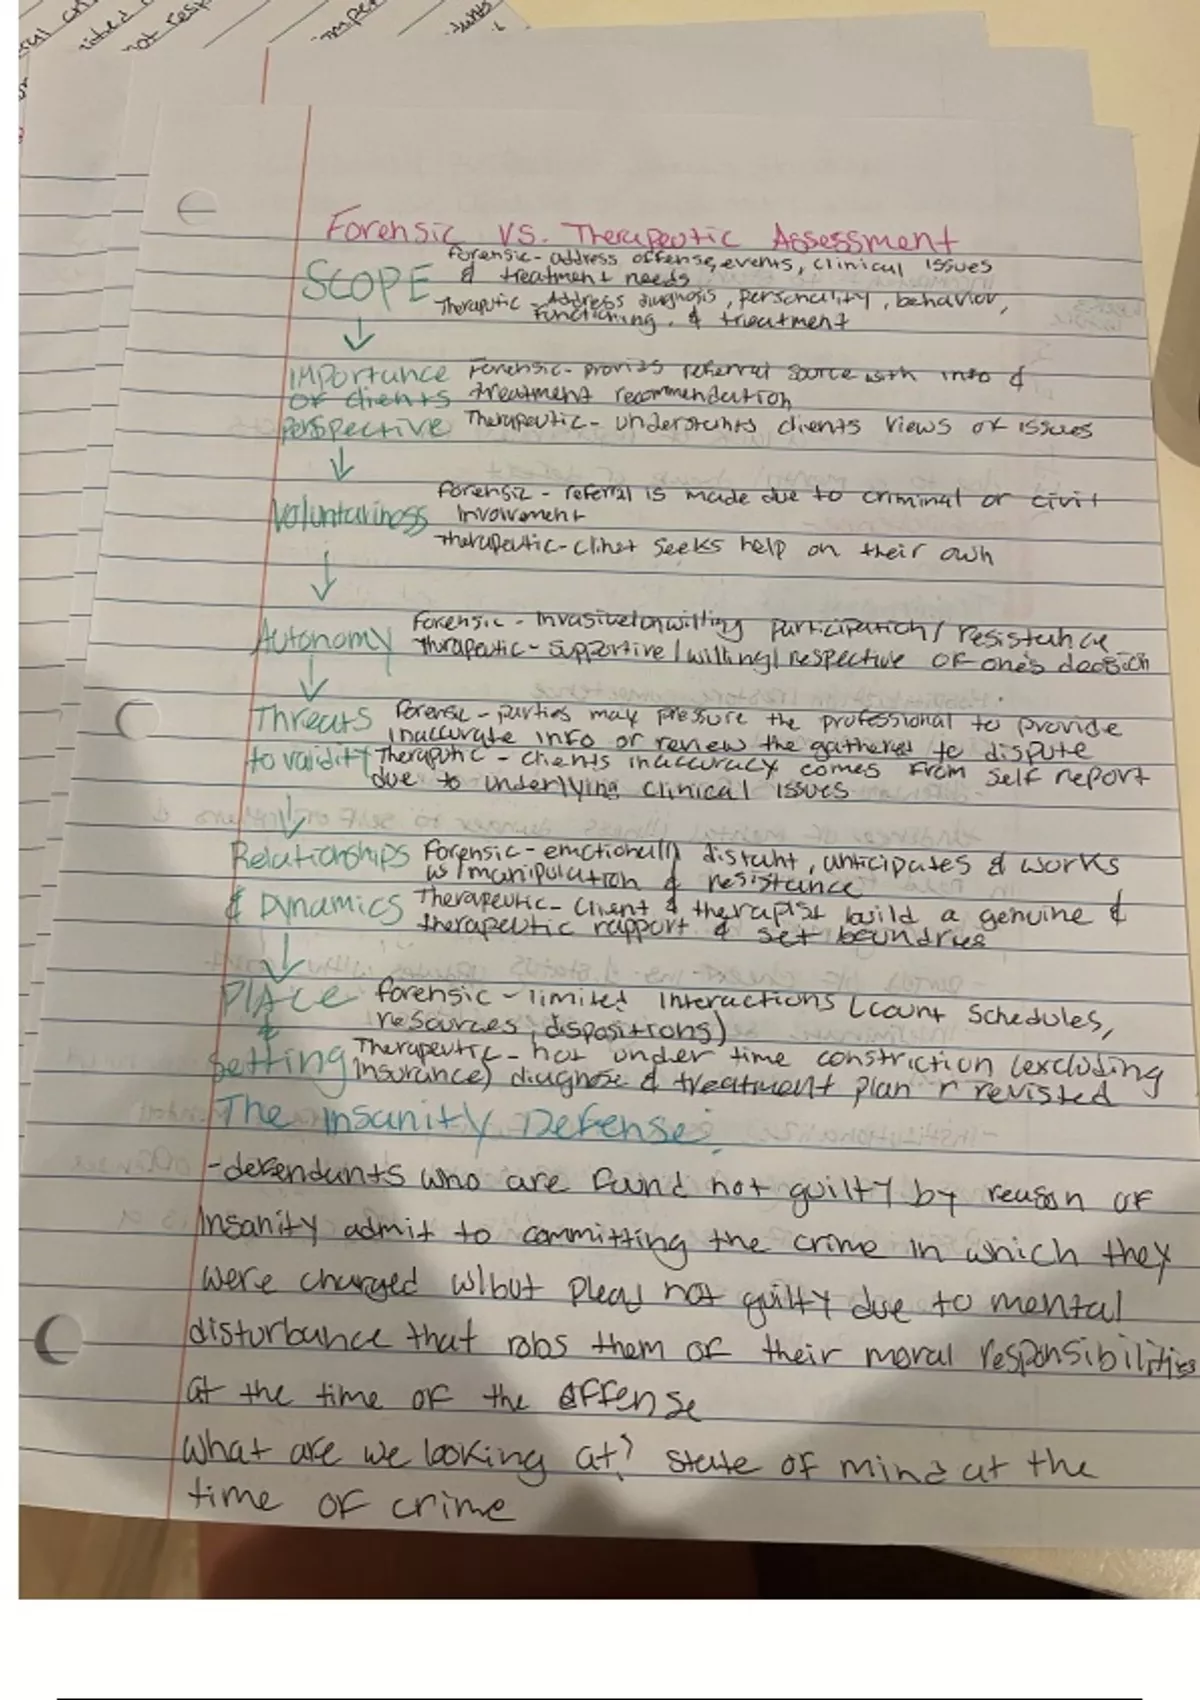 Forensic vs. Therapeutic Assessment
SCOPE
Forensic - address offense, events, clinical issues
& treatment needs
Theraputic - Address diagnosis, personality, behavior,
functioning, & treatment
Importance
of clients
perspective
Forensic - provides referral source with info &
treatment recommendation
Therapeutic - understants clients views of issues
Voluntariness
Forensic - referral is made due to criminal or civil
involvement
Therapeutic - Clinet seeks help on their own
Autonomy
Forensic - Invasive/unwilling participation/resistance
Therapeutic - Supportive/willing/respective of one's decision
Threats
to validity
Forensic - parties may pressure the professional to provide
inaccurate info or review the gathered to dispute
Theraputic - clients inaccuracy comes from self report
due to underlying clinical issues
Relationships
& Dynamics
Forensic - emotionally distant, anticipates & works
w/manipulation & resistance
Therapeutic - Client & therapist build a genuine &
therapeutic rapport & set boundries
Place
&
Setting
Forensic - limited interactions (court schedules,
resources, dispositions)
Therapeutic - not under time constriction (excluding
insurance) diagnose & treatment plan r revisted
The Insanity Defense:
- defendants who are found not guilty by reason of
Insanity admit to committing the crime in which they
were charged w/but plead not guilty due to mental
disturbance that robs them of their moral responsibilities
at the time of the offense
What are we looking at? State of mind at the
time of crime